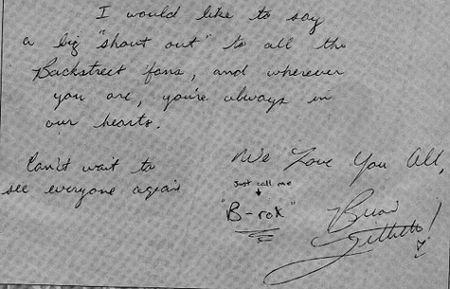 I would like to say
a big "shout out" to all the
Backstreet fans, and wherever
you are, you're always in
our hearts.
Can't wait to
see everyone again
We Love You All,
Just call me
"B-rok"
Brian